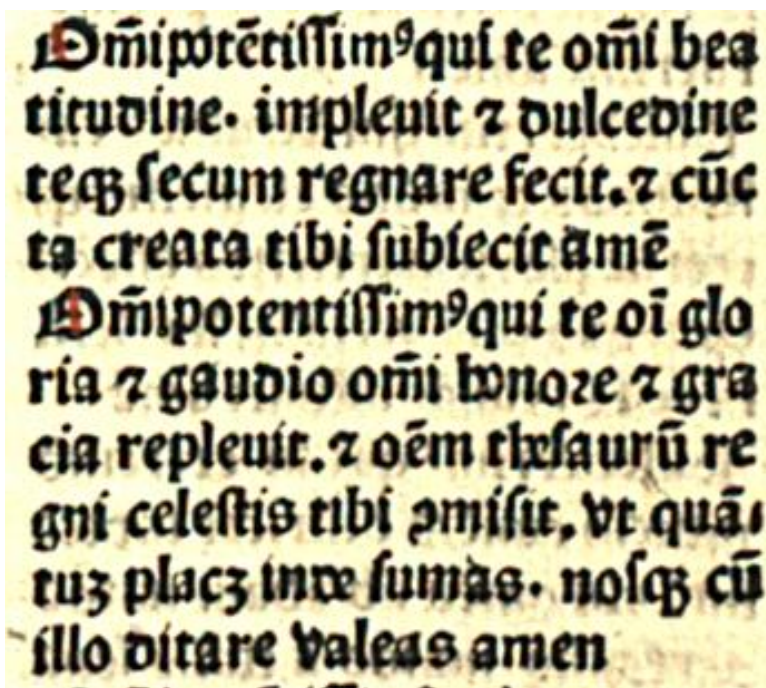 Om̄ipotētiſſimꝰ qui te om̄i bea
titudine. impleuit ⁊ dulcedine
teqꝫ ſecum regnare fecit. ⁊ cūc
ta creata tibi ſubiecit amē
Om̄ipotentiſſimꝰ qui te oī glo
ria ⁊ gaudio om̄i honoꝛe ⁊ gra
cia repleuit. ⁊ oēm theſaurū re
gni celeſtis tibi ꝯmiſit. vt quā
tuꝫ placꝫ inde ſumas. noſqꝫ cū
illo ditare valeas amen